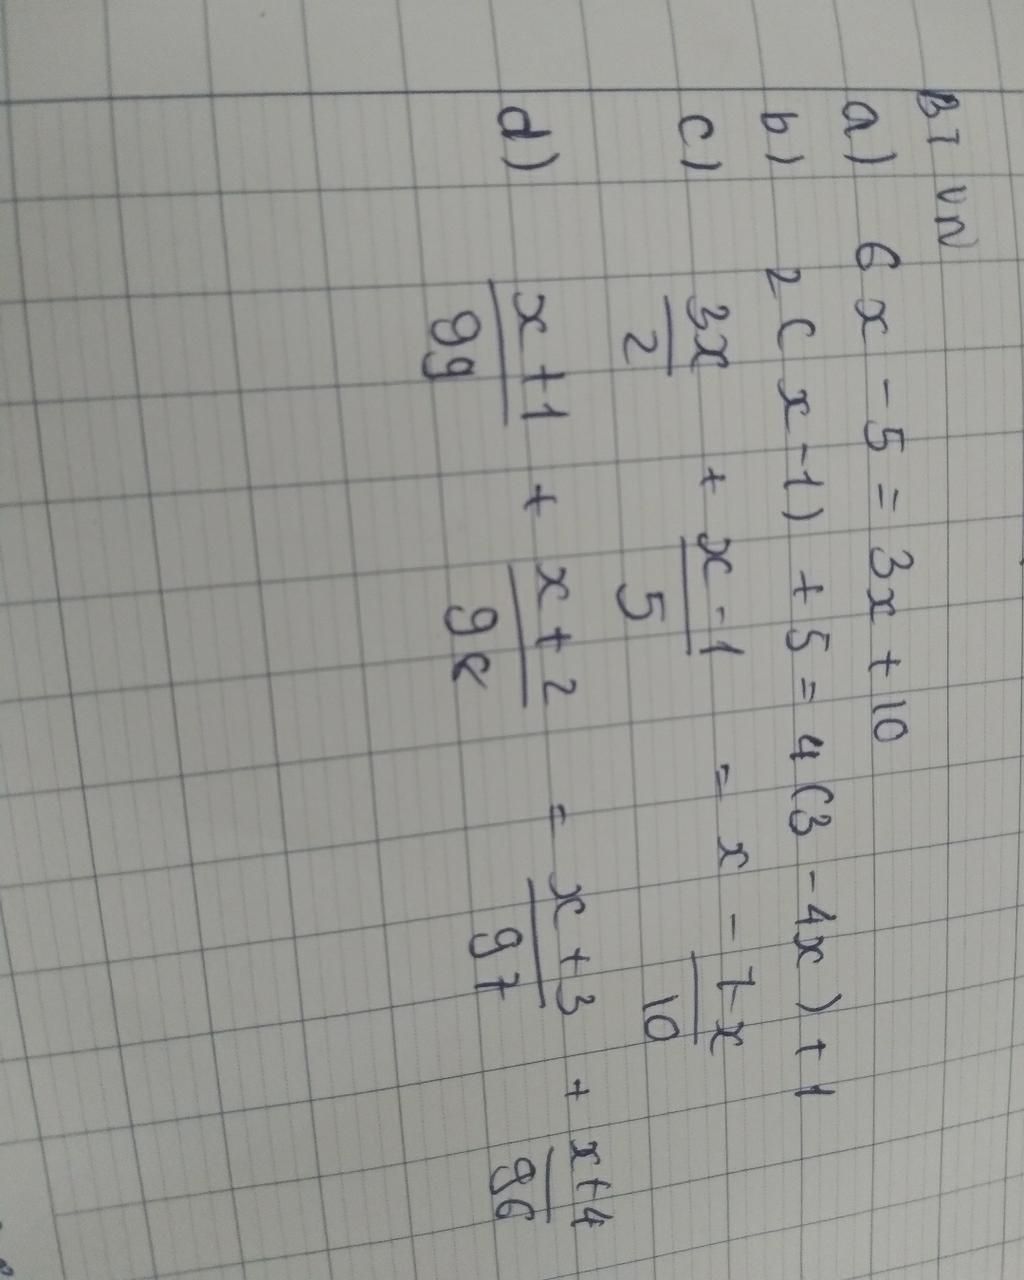 BT VN
a) 6x - 5 = 3x + 10
b) 2(x - 1) + 5 = 4(3 - 4x) + 1
c) 3x/2 + x-1/5 = x - 7x/10
d) x+1/99 + x+2/98 = x+3/97 + x+4/96